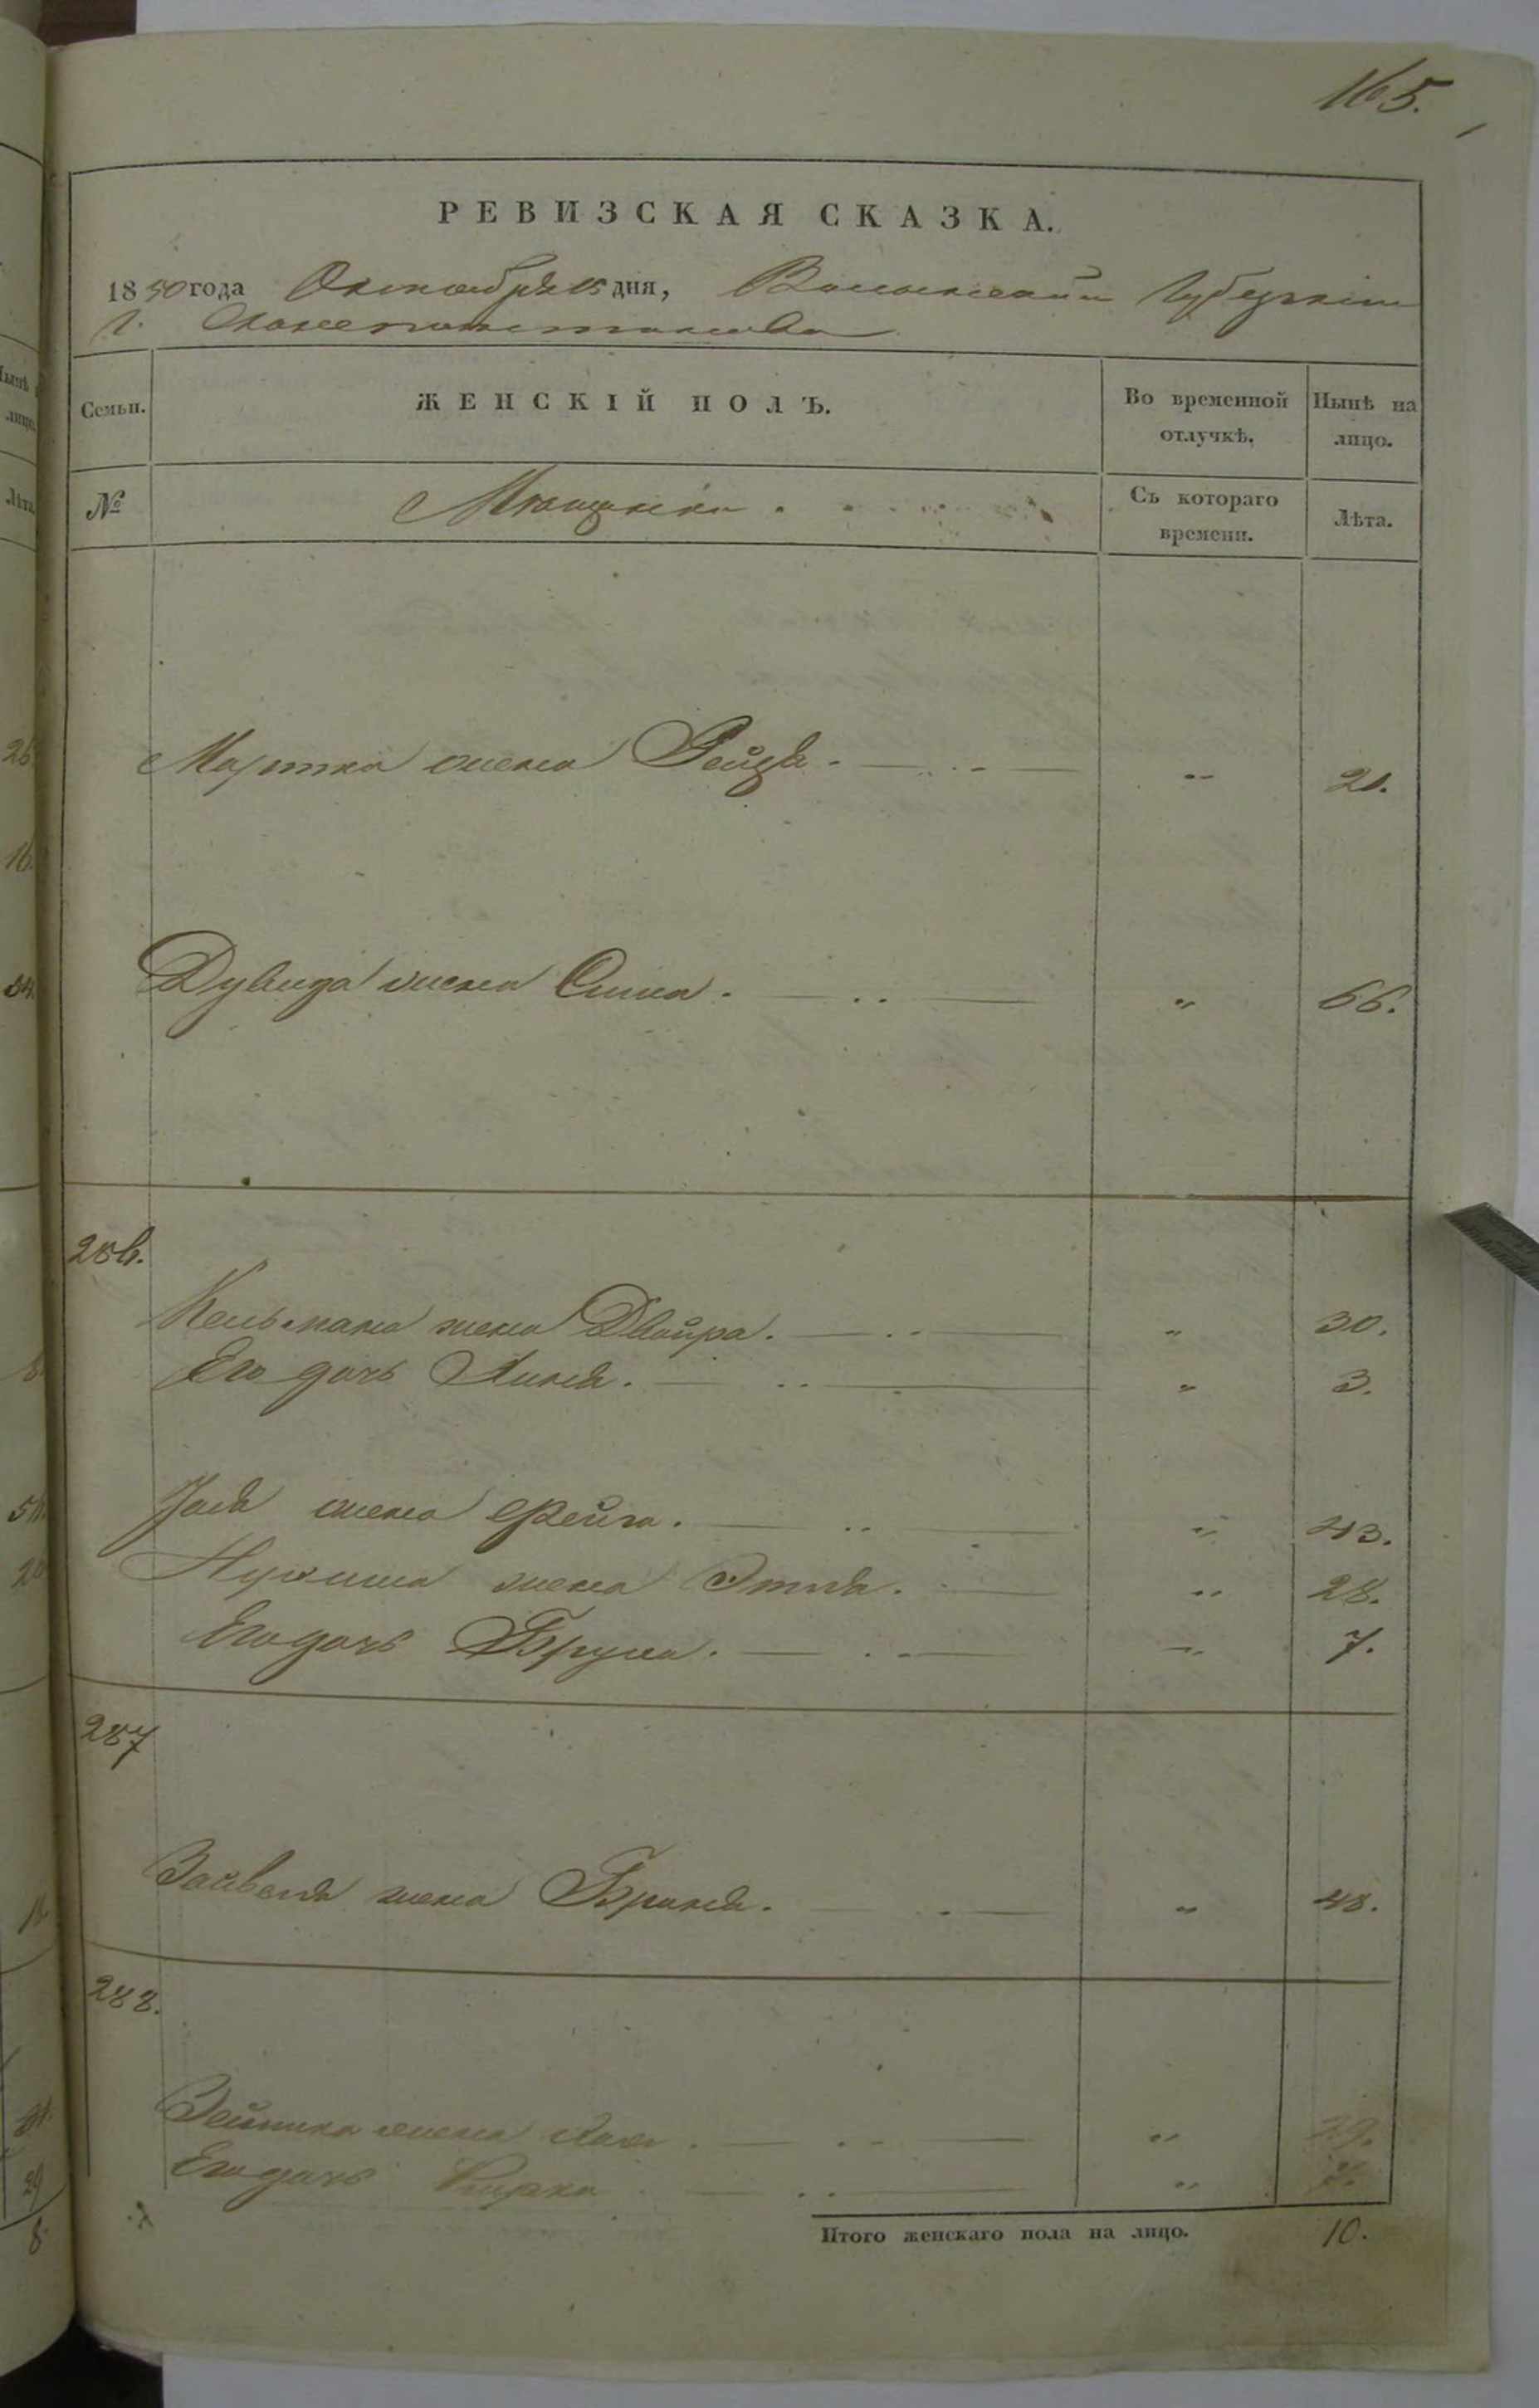 165.
РЕВИЗСКАЯ СКАЗКА.
1850 года Октября 15 дня, Волынской Губернии
г. Староконстантинова
Семьи. ЖЕНСКІЙ ПОЛЪ. Во временной отлучкѣ. Нынѣ на лицо.
№ Мѣщанки. Съ котораго времени. Лѣта.
жена Рейзя. 21.
Дувида жена Сима. 66.
286.
Кельмана жена Двойра. 30.
Его дочь 3.
жена Фейга. 43.
Нухима жена Этля. 28.
Его дочь Бруха. 7.
287
жена Брина. 48.
288.
жена Хая. 29.
Его дочь 7.
Итого женскаго пола на лицо. 10.